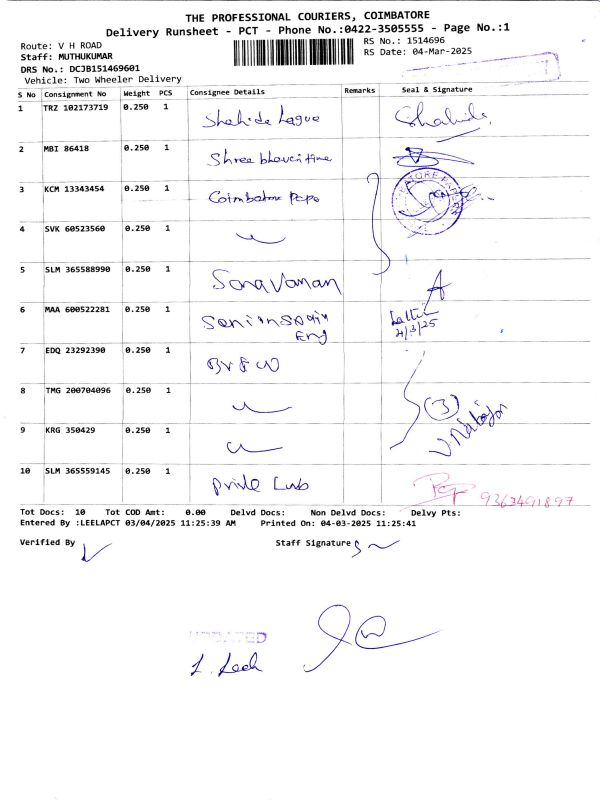 THE PROFESSIONAL COURIERS, COIMBATORE
Delivery Runsheet - PCT - Phone No.:0422-3505555 - Page No.:1
Route: V H ROAD
RS No.: 1514696
Staff: MUTHUKUMAR
RS Date: 04-Mar-2025
DRS No.: DCJB151469601
Vehicle: Two Wheeler Delivery
S No Consignment No Weight PCS Consignee Details Remarks Seal & Signature
1 TRZ 102173719 0.250 1 Shahida
2 MBI 86418 0.250 1
3 KCM 13343454 0.250 1 Coimbatore Pepo
4 SVK 60523560 0.250 1
5 SLM 365588990 0.250 1 Saravanan
6 MAA 600522281 0.250 1 Eng 4/3/25
7 EDQ 23292390 0.250 1
8 TMG 200704096 0.250 1 (3)
9 KRG 350429 0.250 1
10 SLM 365559145 0.250 1 9363491897
Tot Docs: 10 Tot COD Amt: 0.00 Delvd Docs: Non Delvd Docs: Delvy Pts:
Entered By :LEELAPCT 03/04/2025 11:25:39 AM Printed On: 04-03-2025 11:25:41
Verified By Staff Signature
UPDATED